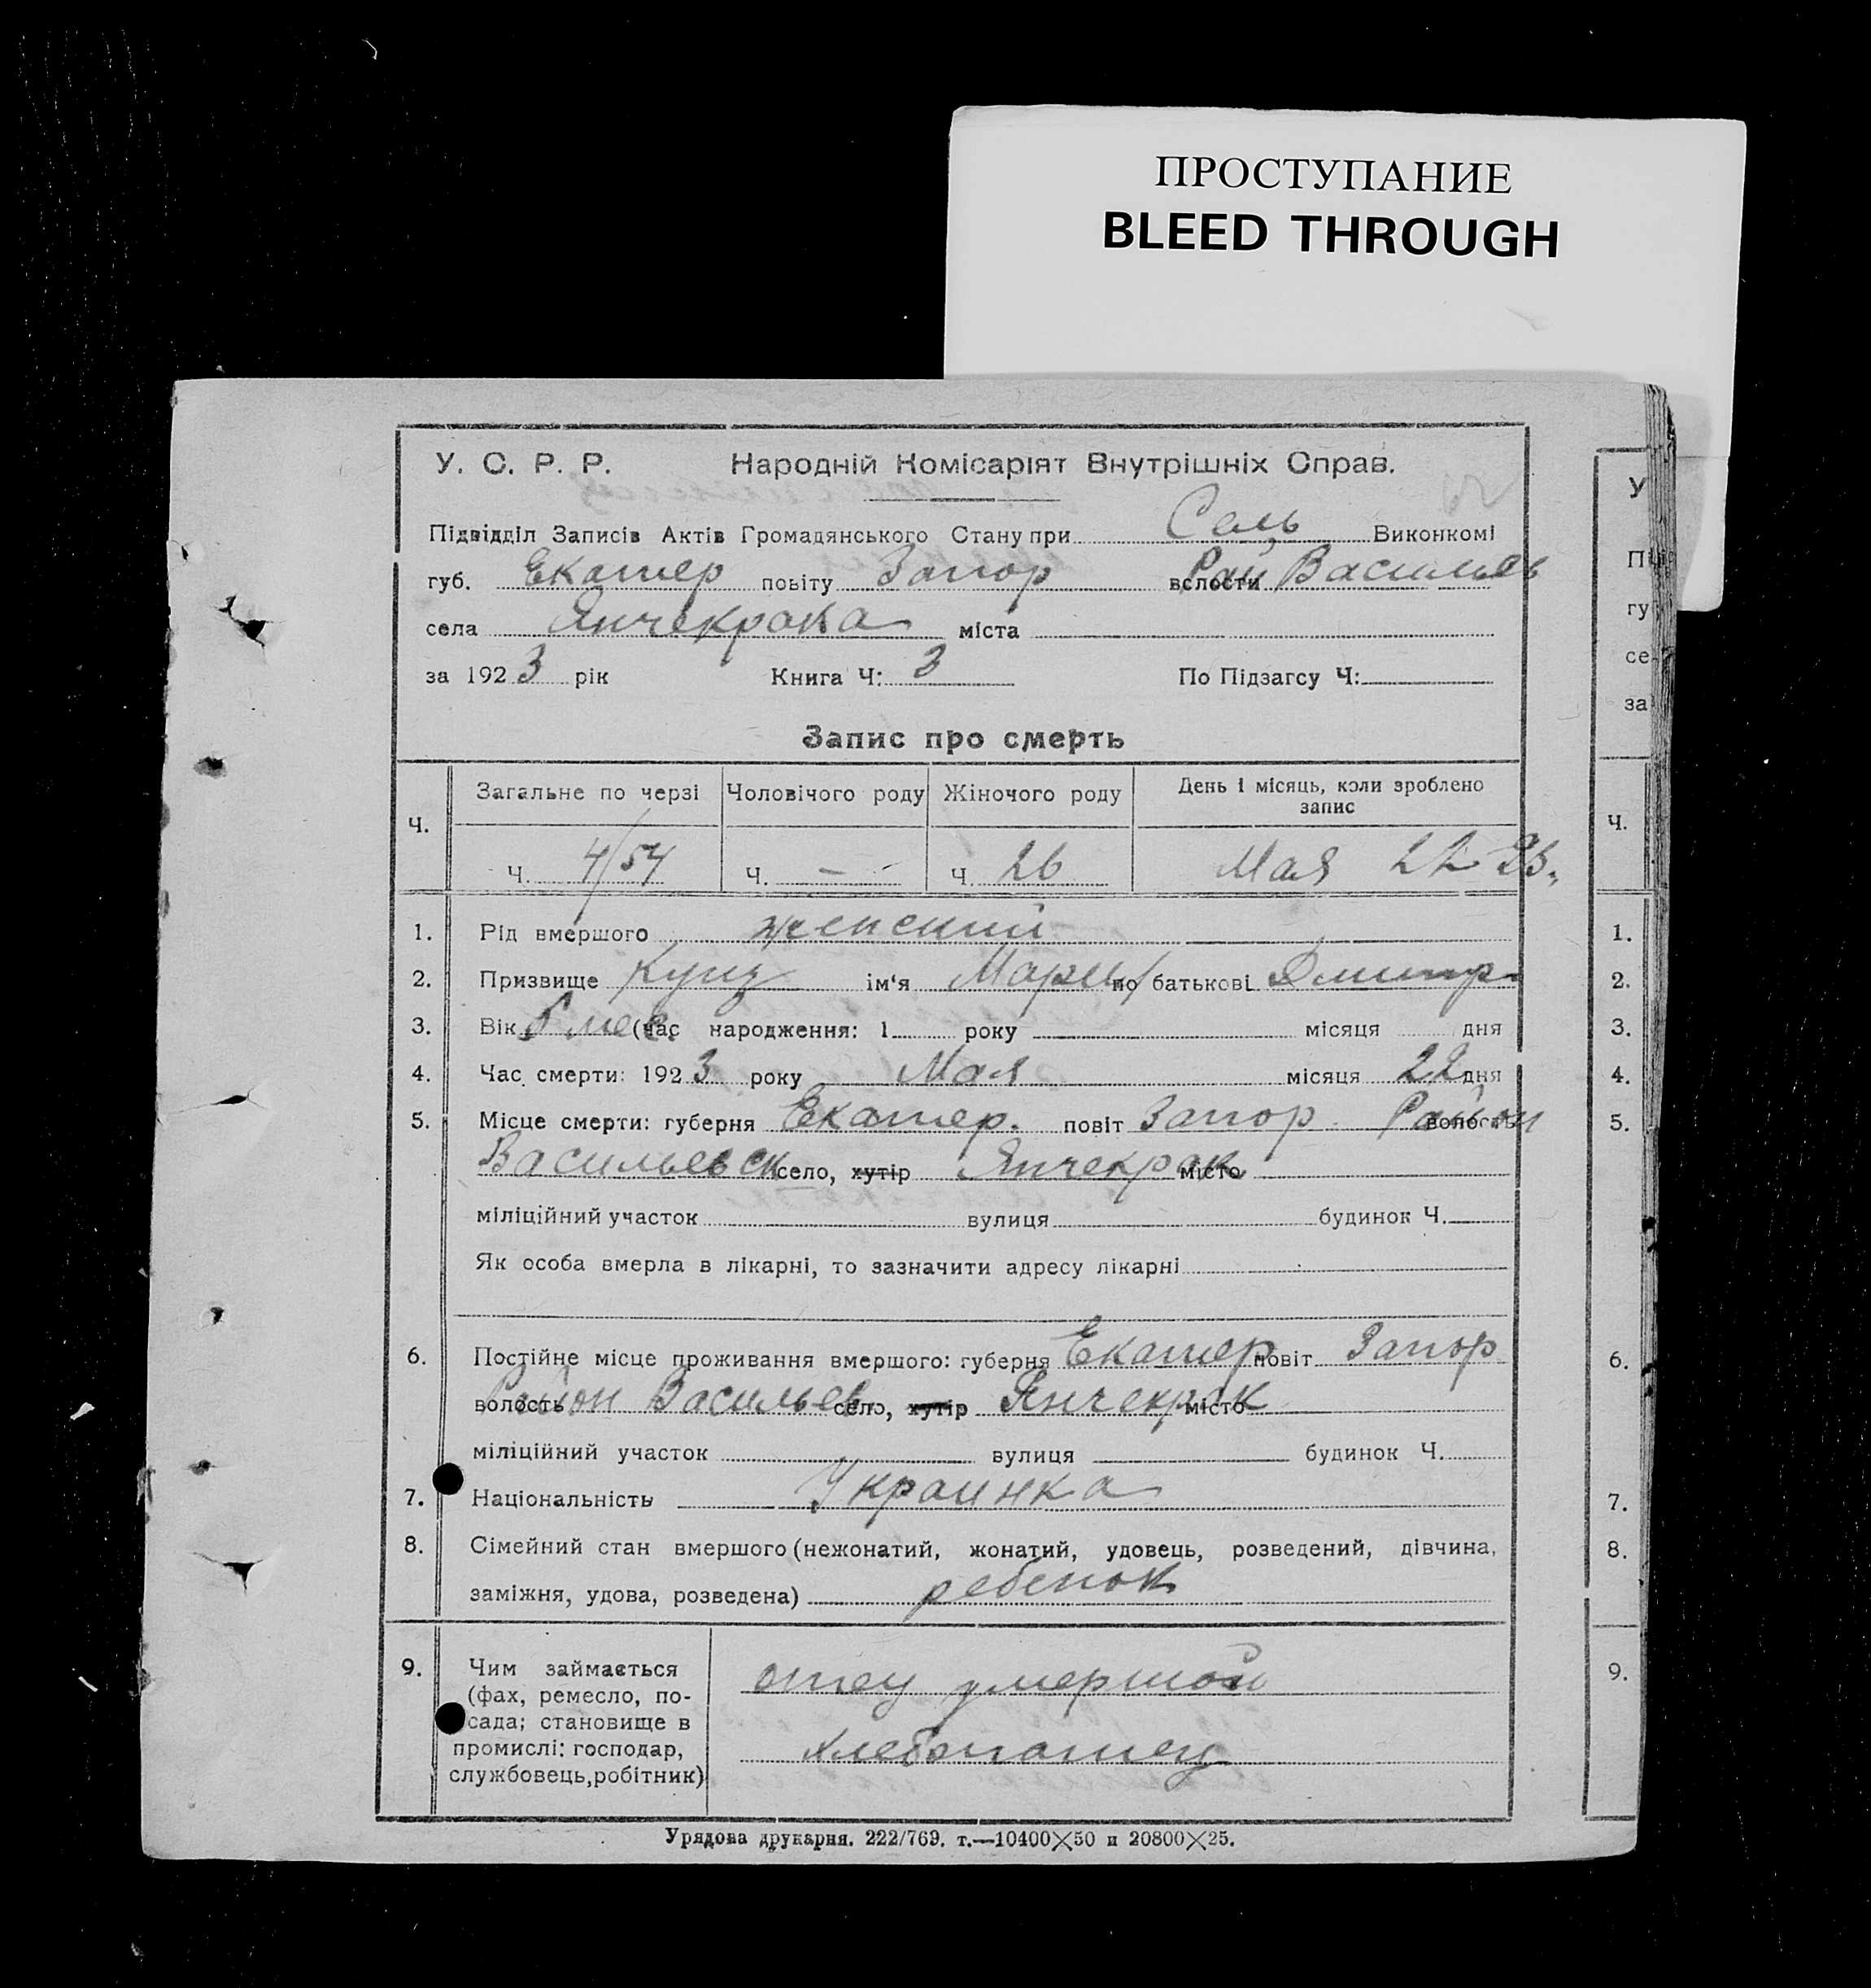 ПРОСТУПАНИЕ
BLEED THROUGH
У. С. Р. Р. Народній Комісаріят Внутрішніх Справ.
Підвідділ Записів Актів Громадянського Стану при Сель Виконкомі
губ. Екатер повіту Запор волости Рай Васильев
села Янчекрака міста
за 1923 рік Книга Ч: 3 По Підзагсу Ч:
Запис про смерть
Ч. Загальне по черзі Чоловічого роду Жіночого роду День і місяць, коли зроблено запис
Ч. 4/54 Ч. — Ч. 26 Мая 22 23.
1. Рід вмершого женский
2. Призвище Кущ ім'я Мария по батькові Дмитр
3. Вік 5 мес. (час народження: 1 року місяця дня
4. Час смерти: 1923 року Мая місяця 22 дня
5. Місце смерти: губерня Екатер. повіт Запор. волость Район
Васильевск село, хутір Янчекрак місто
міліційний участок вулиця будинок Ч.
Як особа вмерла в лікарні, то зазначити адресу лікарні
6. Постійне місце проживання вмершого: губерня Екатер повіт Запор
волость Район Васильев село, хутір Янчекрак місто
міліційний участок вулиця будинок Ч.
7. Національність Украинка
8. Сімейний стан вмершого (нежонатий, жонатий, удовець, розведений, дівчина,
заміжня, удова, розведена) ребенок
9. Чим займається
(фах, ремесло, по-
сада; становище в
промислі: господар,
службовець, робітник)
отец умершой
хлебопашец
Урядова друкарня. 222/769. т.—10400×50 и 20800×25.
У
П
гу
се
за
Ч.
1.
2.
3.
4.
5.
6.
7.
8.
9.